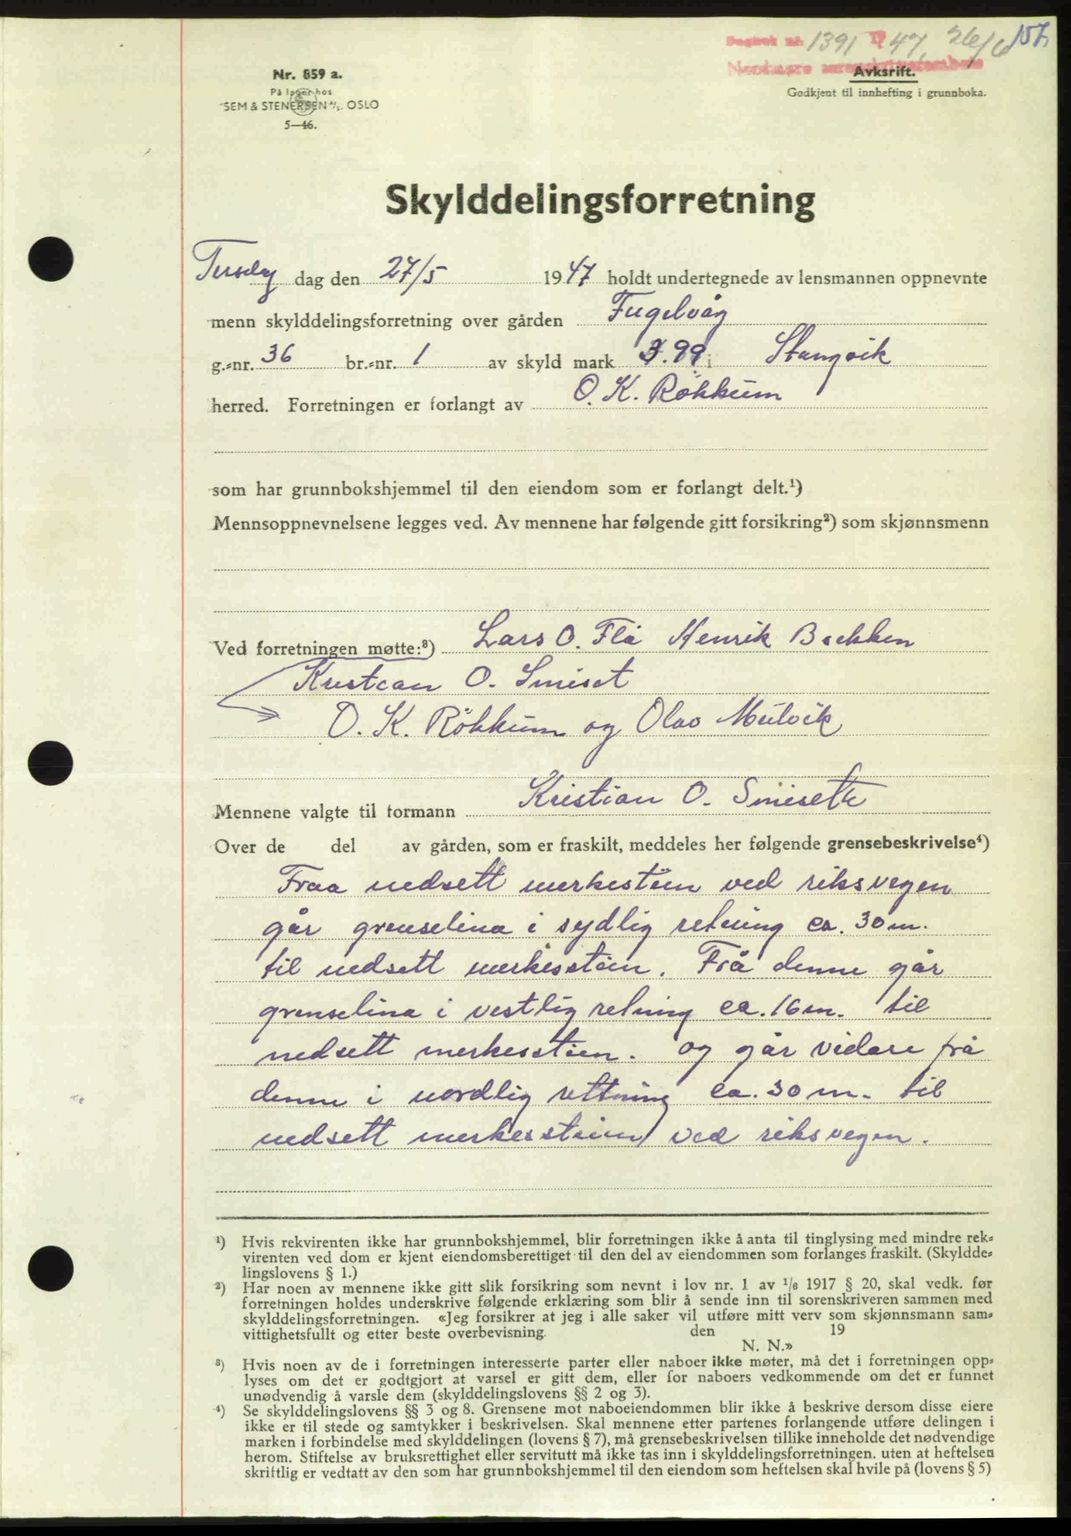 Dagbok nr. 1391 19 47, 26/6 157.
Nordmøre sorenskriverembete
Avskrift.
Godkjent til innhefting i grunnboka.
Nr. 859 a.
På lager hos
SEM & STENERSEN A/S. OSLO
5—46.
Skylddelingsforretning
Tirsdag dag den 27/5 1947 holdt undertegnede av lensmannen oppnevnte
menn skylddelingsforretning over gården Fugelvåg
g.-nr. 36 br.-nr. 1 av skyld mark 3.99 i Stangvik
herred. Forretningen er forlangt av O. K. Røkkum
som har grunnbokshjemmel til den eiendom som er forlangt delt.¹)
Mennsoppnevnelsene legges ved. Av mennene har følgende gitt forsikring²) som skjønnsmenn
Ved forretningen møtte:³) Lars O. Flå Henrik Bækken
Kristean O. Smiset
O. K. Røkkum og Olav Mulvik
Mennene valgte til formann Kristian O. Smiseth
Over de del av gården, som er fraskilt, meddeles her følgende grensebeskrivelse⁴)
Fraa nedsett merkestein ved riksvegen
går grenselina i sydlig retning ca. 30 m.
til nedsett merkesstein. Frå denne går
grenselina i vestlig retning ca. 16 m. til
nedsett merkesstein. og går vidare frå
denne i nordlig rettning ca. 30 m. til
nedsett merkesstein ved riksvegen.
¹) Hvis rekvirenten ikke har grunnbokshjemmel, blir forretningen ikke å anta til tinglysing med mindre rek-
virenten ved dom er kjent eiendomsberettiget til den del av eiendommen som forlanges fraskilt. (Skyldde-
lingslovens § 1.)
²) Har noen av mennene ikke gitt slik forsikring som nevnt i lov nr. 1 av 1/6 1917 § 20, skal vedk. før
forretningen holdes underskrive følgende erklæring som blir å sende inn til sorenskriveren sammen med
skylddelingsforretningen. «Jeg forsikrer at jeg i alle saker vil utføre mitt verv som skjønnsmann sam-
vittighetsfullt og etter beste overbevisning. den 19
N. N.»
³) Hvis noen av de i forretningen interesserte parter eller naboer ikke møter, må det i forretningen opp-
lyses om det er godtgjort at varsel er gitt dem, eller for naboers vedkommende om det er funnet
unødvendig å varsle dem (skylddelingslovens §§ 2 og 3).
⁴) Se skylddelingslovens §§ 3 og 8. Grensene mot naboeiendommen blir ikke å beskrive dersom disse eiere
ikke er til stede og samtykker i beskrivelsen. Skal mennene etter partenes forlangende utføre delingen i
marken i forbindelse med skylddelingen (lovens § 7), må grensebeskrivelsen tillike inneholde det nødvendige
herom. Stiftelse av bruksrettighet eller servitutt må ikke tas inn i skylddelingsforretningen. uten at heftelsen
skriftlig er vedtatt av den som har grunnbokshjemmel til den eiendom som heftelsen skal hvile på (lovens § 5)